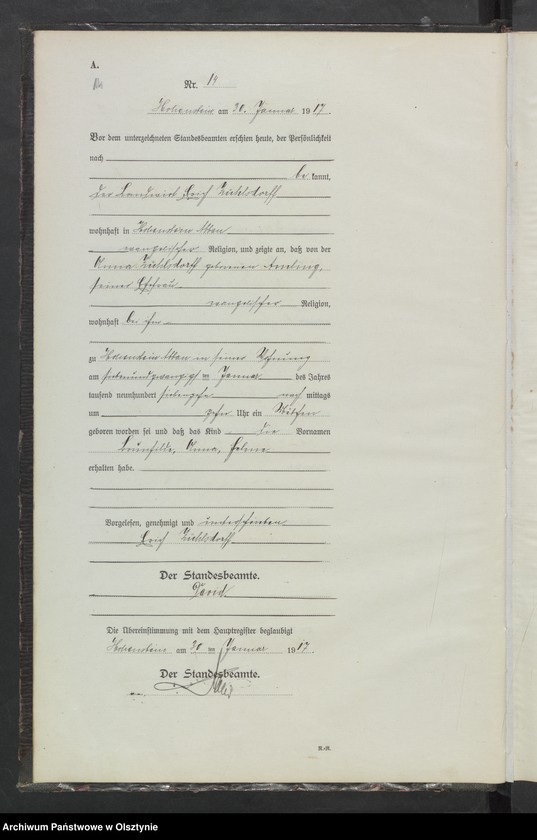 A.
Nr. 19
Hohenstein am 30. Januar 1917.
Vor dem unterzeichneten Standesbeamten erschien heute, der Persönlichkeit
nach
be kannt,
der Landwirt Erich
wohnhaft in Hohenstein
evangelischer Religion, und zeigte an, daß von der
Anna geborenen
seiner Ehefrau
evangelischer Religion,
wohnhaft bei ihm
zu Hohenstein in seiner Wohnung
am siebenundzwanzigsten Januar des Jahres
tausend neunhundert siebenzehn nach mittags
um zehn Uhr ein Mädchen
geboren worden sei und daß das Kind die Vornamen
Anna,
erhalten habe.
Vorgelesen, genehmigt und unterschrieben
Erich
Der Standesbeamte.
David
Die Übereinstimmung mit dem Hauptregister beglaubigt
Hohenstein am 30 ten Januar 1917.
Der Standesbeamte.
R.-R.
Archiwum Państwowe w Olsztynie